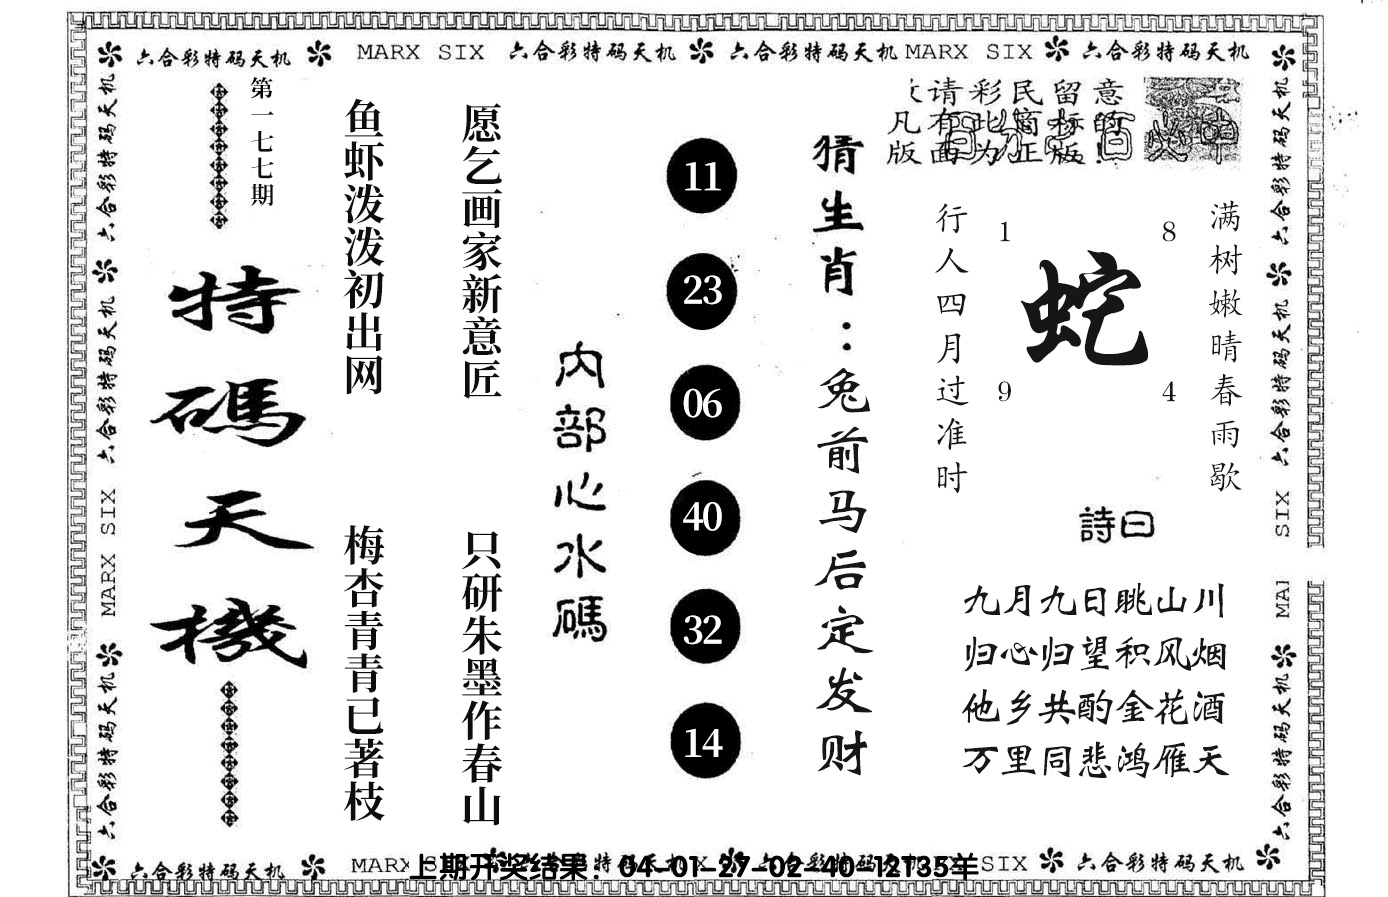 六合彩特码天机 MARX SIX 六合彩特码天机 六合彩特码天机 MARX SIX 六合彩特码天机
六合彩特码天机 六合彩特码天机 MARX SIX 六合彩特码天机
第一七七期
特碼天機
鱼虾泼泼初出网
梅杏青青已著枝
愿乞画家新意匠
只研朱墨作春山
内部心水碼
11
23
06
40
32
14
猜生肖：兔前马后定发财
请彩民留意
凡有此商标的
版面为正版！
满树嫩晴春雨歇
行人四月过准时
1 8
蛇
9 4
詩曰
九月九日眺山川
归心归望积风烟
他乡共酌金花酒
万里同悲鸿雁天
六合彩特码天机 六合彩特码天机 SIX MAI 六合彩特码天机
六合彩特码天机 MARX SIX 六合彩特码天机 SIX 六合彩特码天机
上期开奖结果：04-01-27-02-40-12T35羊